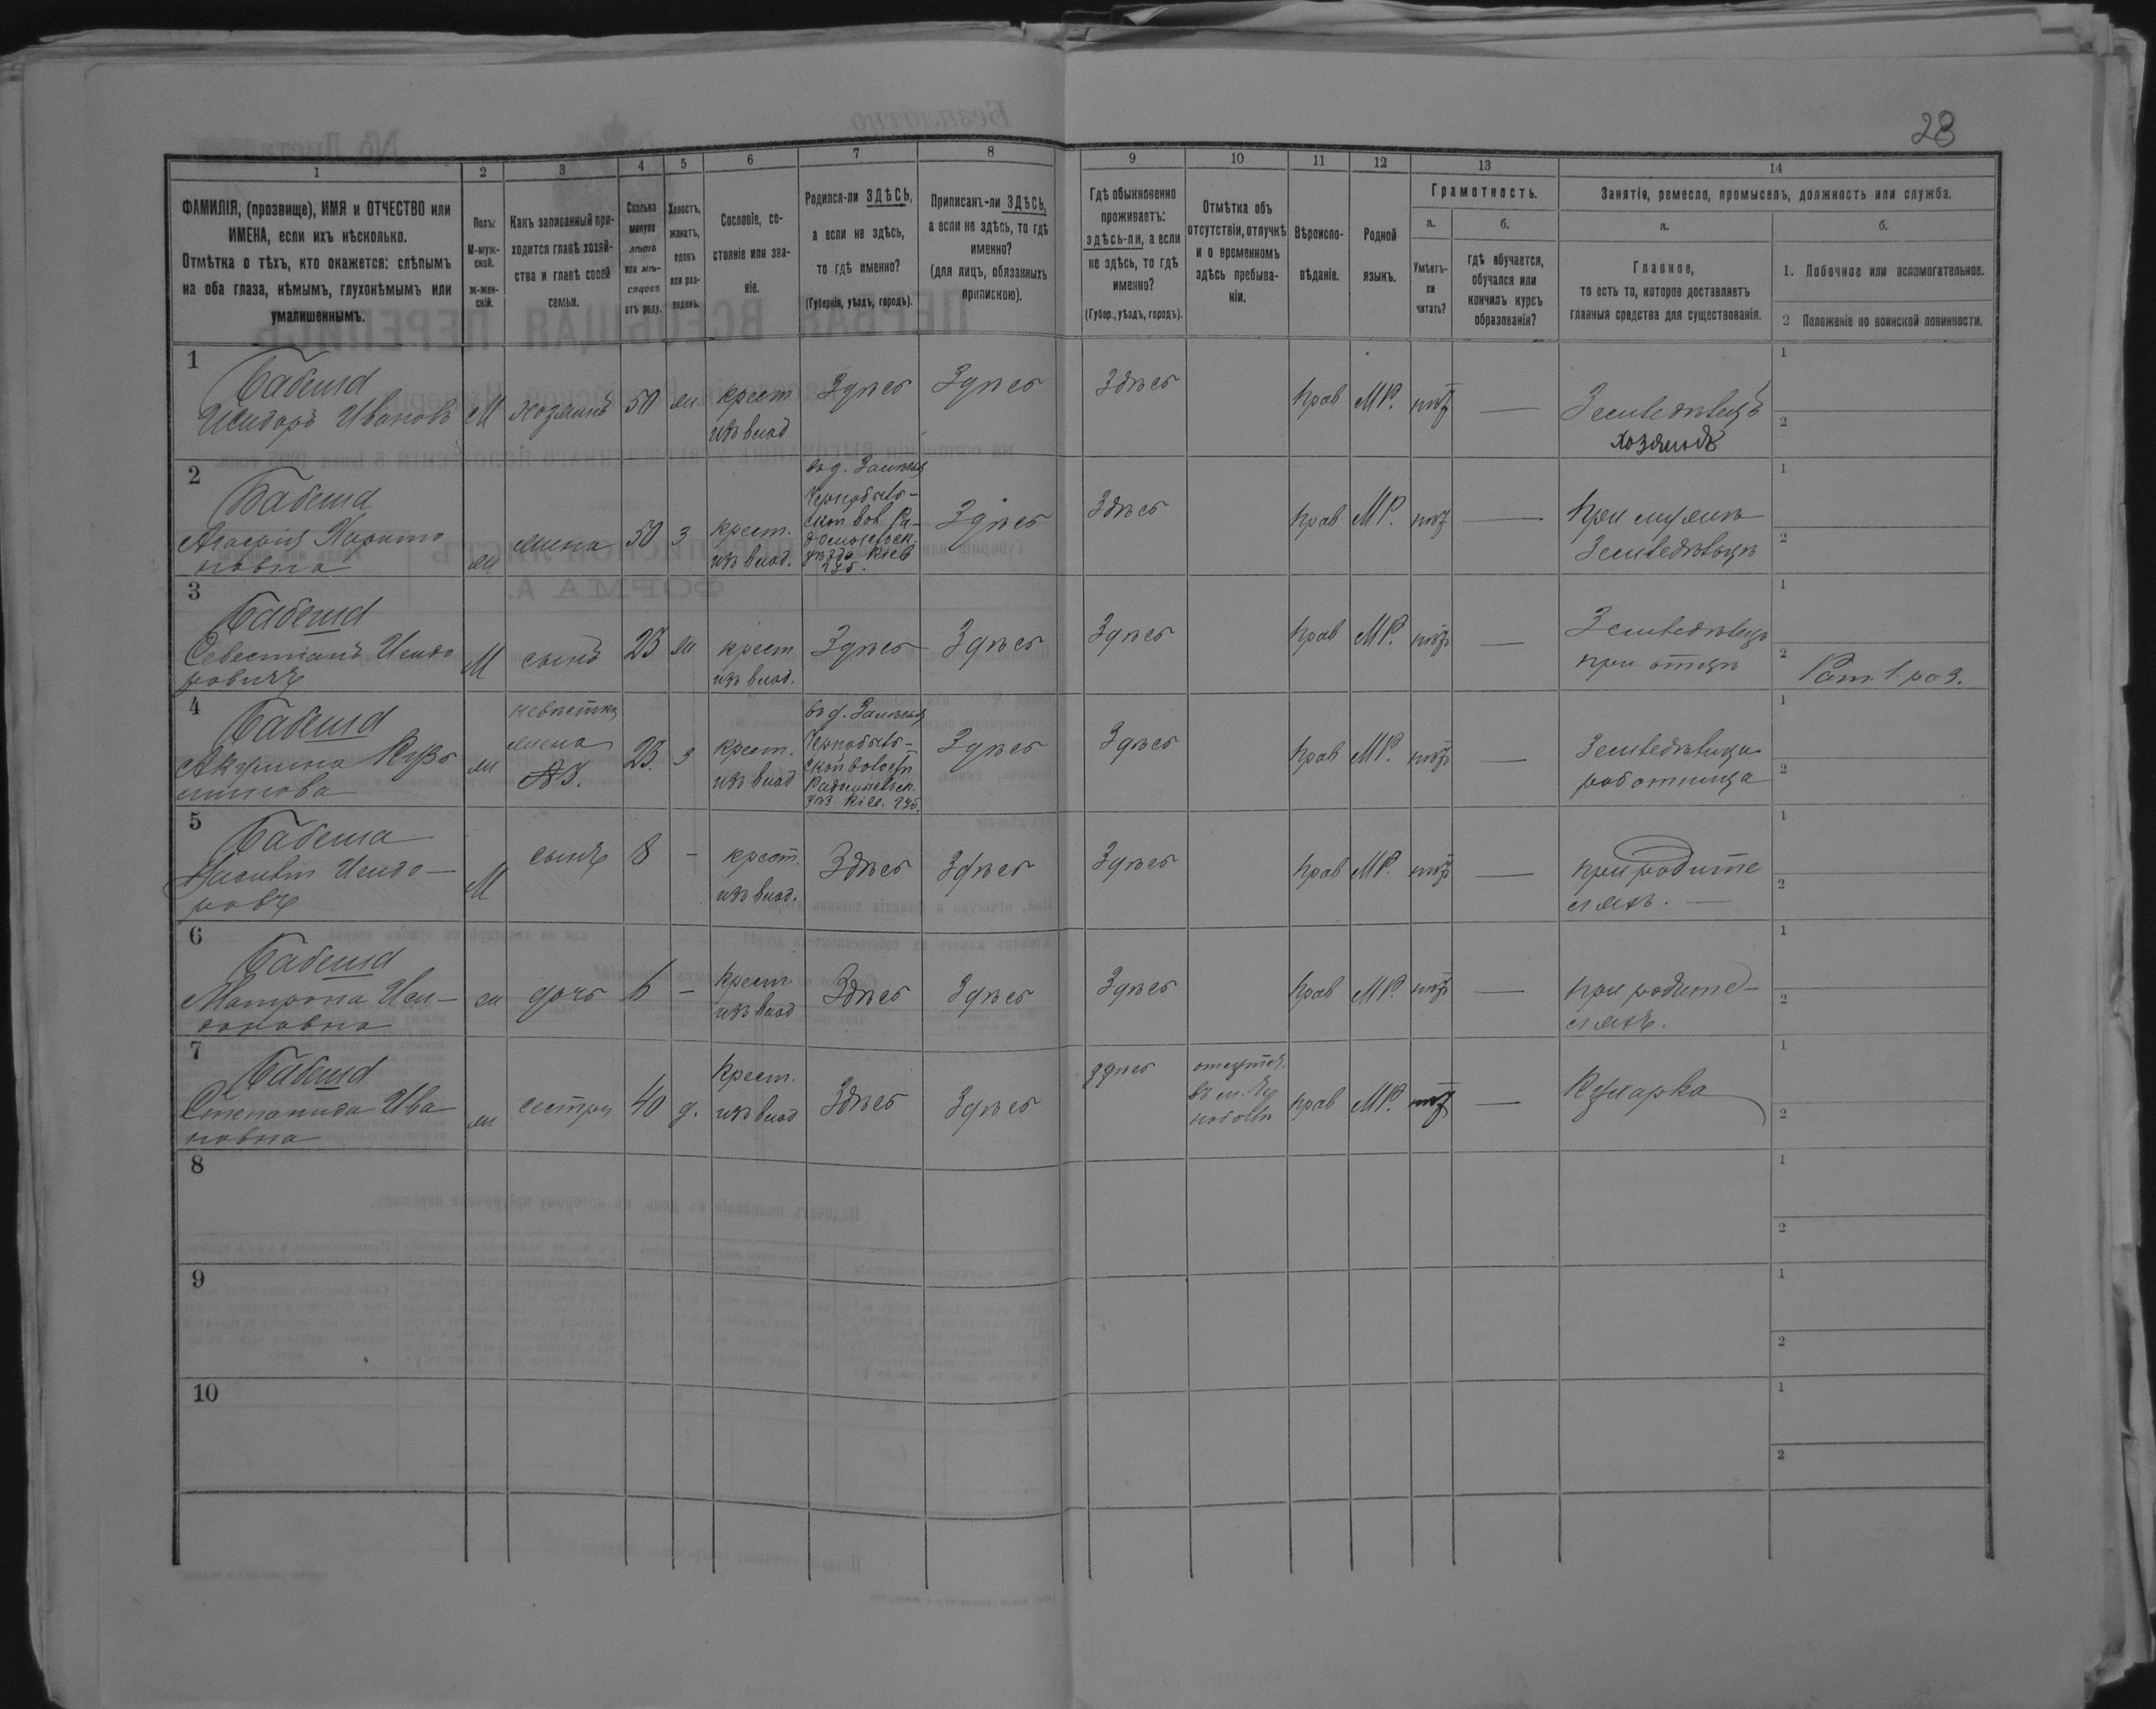 28
1 2 3 4 5 6 7 8 9 10 11 12 13 14
ФАМИЛІЯ, (прозвище), ИМЯ и ОТЧЕСТВО или
ИМЕНА, если ихъ нѣсколько.
Отмѣтка о тѣхъ, кто окажется: слѣпымъ
на оба глаза, нѣмымъ, глухонѣмымъ или
умалишеннымъ.
Полъ:
М-муж-
ской.
ж-жен-
скій.
Какъ записанный при-
ходится главѣ хозяй-
ства и главѣ своей
семьи.
Сколько
минуло
лѣтъ
или мѣ-
сяцевъ
отъ роду.
Холостъ,
женатъ,
вдовъ
или раз-
веденъ.
Сословіе, со-
стояніе или зва-
ніе.
Родился-ли ЗДѢСЬ,
а если не здѣсь,
то гдѣ именно?
(Губернія, уѣздъ, городъ).
Приписанъ-ли ЗДѢСЬ,
а если не здѣсь, то гдѣ
именно?
(для лицъ, обязанныхъ
припискою).
Гдѣ обыкновенно
проживаетъ:
здѣсь-ли, а если
не здѣсь, то гдѣ
именно?
(Губер., уѣздъ, городъ).
Отмѣтка объ
отсутствіи, отлучкѣ
и о временномъ
здѣсь пребыва-
ніи.
Вѣроиспо-
вѣданіе.
Родной
языкъ.
Грамотность.
а.
Умѣетъ-
ли
читать?
б.
гдѣ обучается,
обучался или
кончилъ курсъ
образованія?
Занятіе, ремесло, промыселъ, должность или служба.
а.
Главное,
то есть то, которое доставляетъ
главныя средства для существованія.
б.
1. Побочное или вспомогательное.
2 Положеніе по воинской повинности.
1
Бабеша
Исидоръ Ивановъ
М
хозяинъ
50
ж
крест
изъ влад
Здѣсь
Здѣсь
Здѣсь
Прав
МР.
нѣтъ
—
Земледѣлецъ
хозяинъ
1
2
2
Бабеша
новна
ж
жена
50
З
крест.
изъ влад.
въ д. Залѣсья
Чернобыль-
ской вол. Ра-
домысльск.
уѣзда Кіев
губ.
Здѣсь
Здѣсь
Прав
МР.
нѣтъ
—
При мужѣ
Земледѣльцѣ
1
2
3
Бабеша
Севестіанъ Исидо
ровичъ
М
сынъ
23
ж
крест
изъ влад.
Здѣсь
Здѣсь
Здѣсь
Прав
МР.
нѣтъ
—
Земледѣлецъ
при отцѣ
1
2
Рат. 1 раз.
4
Бабеша
Акулина Кузь
минова
ж
невѣстка
жена
№3.
23.
З
крест.
изъ влад
въ д. Залѣсья
Чернобыль-
ской волости
Радомысльск.
уѣз Кіев. губ.
Здѣсь
Здѣсь
Прав
МР.
нѣтъ
Земледѣлица
работница
1
2
5
Бабеша
Исидо-
ровъ
М
сынъ
8
-
крест.
изъ влад.
Здѣсь
Здѣсь
Здѣсь
Прав
МР.
нѣтъ
—
при родите
ляхъ. —
1
2
6
Бабеша
Матрона Иси-
доровна
ж
дочь
6
-
Крест.
изъ влад
Здѣсь
Здѣсь
Здѣсь
Прав
МР.
нѣтъ
—
при родите-
ляхъ.
1
2
7
Бабеша
Степанида Ива
новна
ж
сестра
40
д.
Крест.
изъ влад
Здѣсь
Здѣсь
здѣсь
отсутст.
въ м.
Прав
МР.
нѣтъ
—
Кухарка
1
2
8
1
2
9
1
2
10
1
2